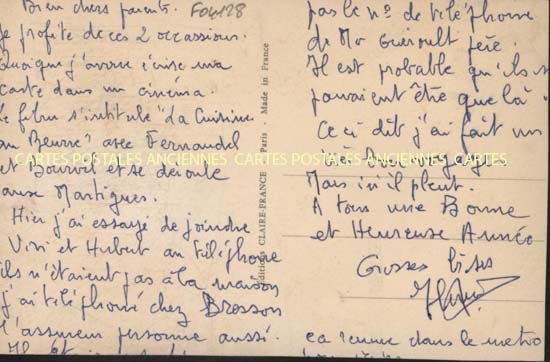 Bien chers parents. FOG128
Je profite de ces 2 occassions.
Quoique j'avoue écrire ma
carte dans un cinéma.
Le film s'intitule "La Cuisine
au Beurre" avec Fernandel
et Bourvil et se déroule
aux Martigues.
Hier j'ai essayé de joindre
Vivi et Hubert au téléphone
ils n'étaient pas à la maison
j'ai téléphoné chez Bresson
l'assureur personne aussi.
Éditions CLAIRE-FRANCE Paris - Made in France
pas le no de téléphone
de Mr Guéroult père.
Il est probable qu'ils
pouvaient être que là.
Ceci dit j'ai fait un
très bon voyage
Mais ici il pleut.
A tous une Bonne
et Heureuse Année
Grosses bises
dans le métro
CARTES POSTALES ANCIENNES CARTES POSTALES ANCIENNES CARTES